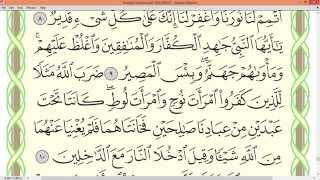 أَتْمِمْ لَنَا نُورَنَا وَاغْفِرْ لَنَا إِنَّكَ عَلَىٰ كُلِّ شَيْءٍ قَدِيرٌ ٨
يَا أَيُّهَا النَّبِيُّ جَاهِدِ الْكُفَّارَ وَالْمُنَافِقِينَ وَاغْلُظْ عَلَيْهِمْ
وَمَأْوَاهُمْ جَهَنَّمُ وَبِئْسَ الْمَصِيرُ ٩ ضَرَبَ اللَّهُ مَثَلًا
لِّلَّذِينَ كَفَرُوا امْرَأَتَ نُوحٍ وَامْرَأَتَ لُوطٍ كَانَتَا تَحْتَ
عَبْدَيْنِ مِنْ عِبَادِنَا صَالِحَيْنِ فَخَانَتَاهُمَا فَلَمْ يُغْنِيَا عَنْهُمَا
مِنَ اللَّهِ شَيْئًا وَقِيلَ ادْخُلَا النَّارَ مَعَ الدَّاخِلِينَ ١٠